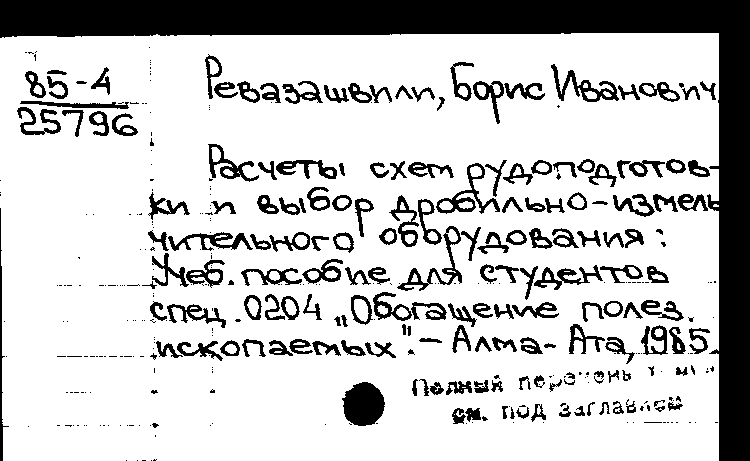 85-4
25796
Ревазашвили, Борис Иванович
Расчеты схем рудоподготов-
ки и выбор дробильно-измель
чительного оборудования:
Учеб. пособие для студентов
спец. 0204 „Обогащение полез.
ископаемых". - Алма-Ата, 1985.
Полный перечень
см. под заглавием